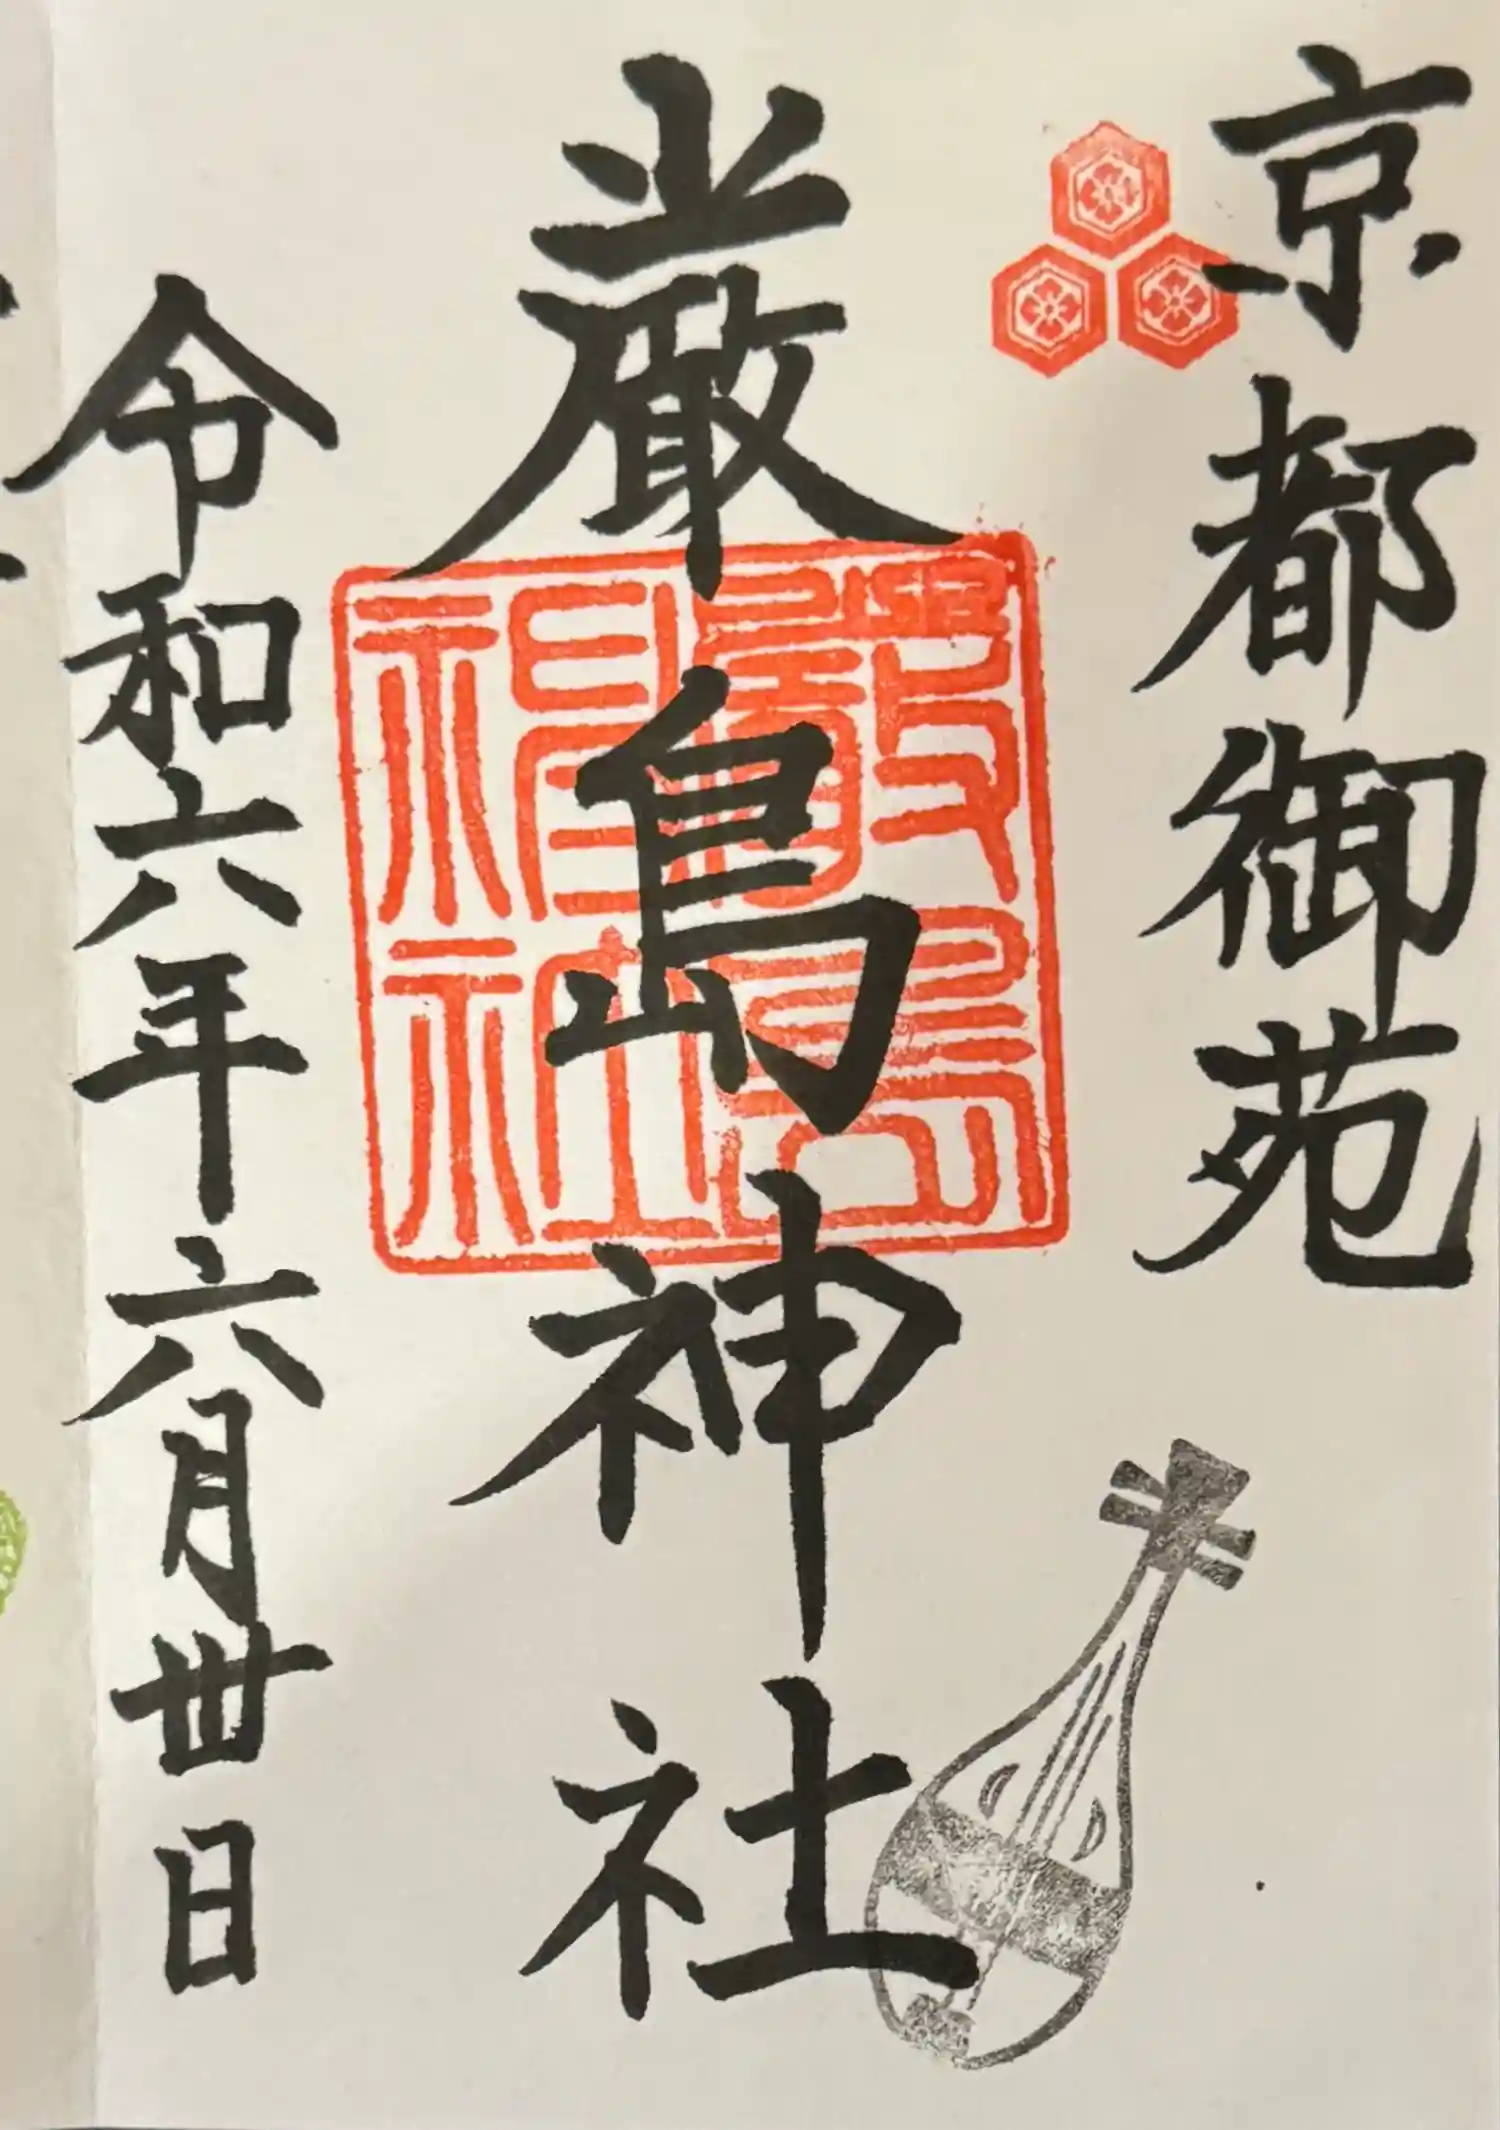 京都御苑
厳島神社
嚴島神社
令和六年六月丗日